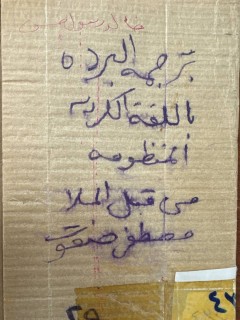 ترجمة البردة
باللغة الكردية
المنظومه
من قبل الملا
مصطفى صفوت
٤٧
٢٩